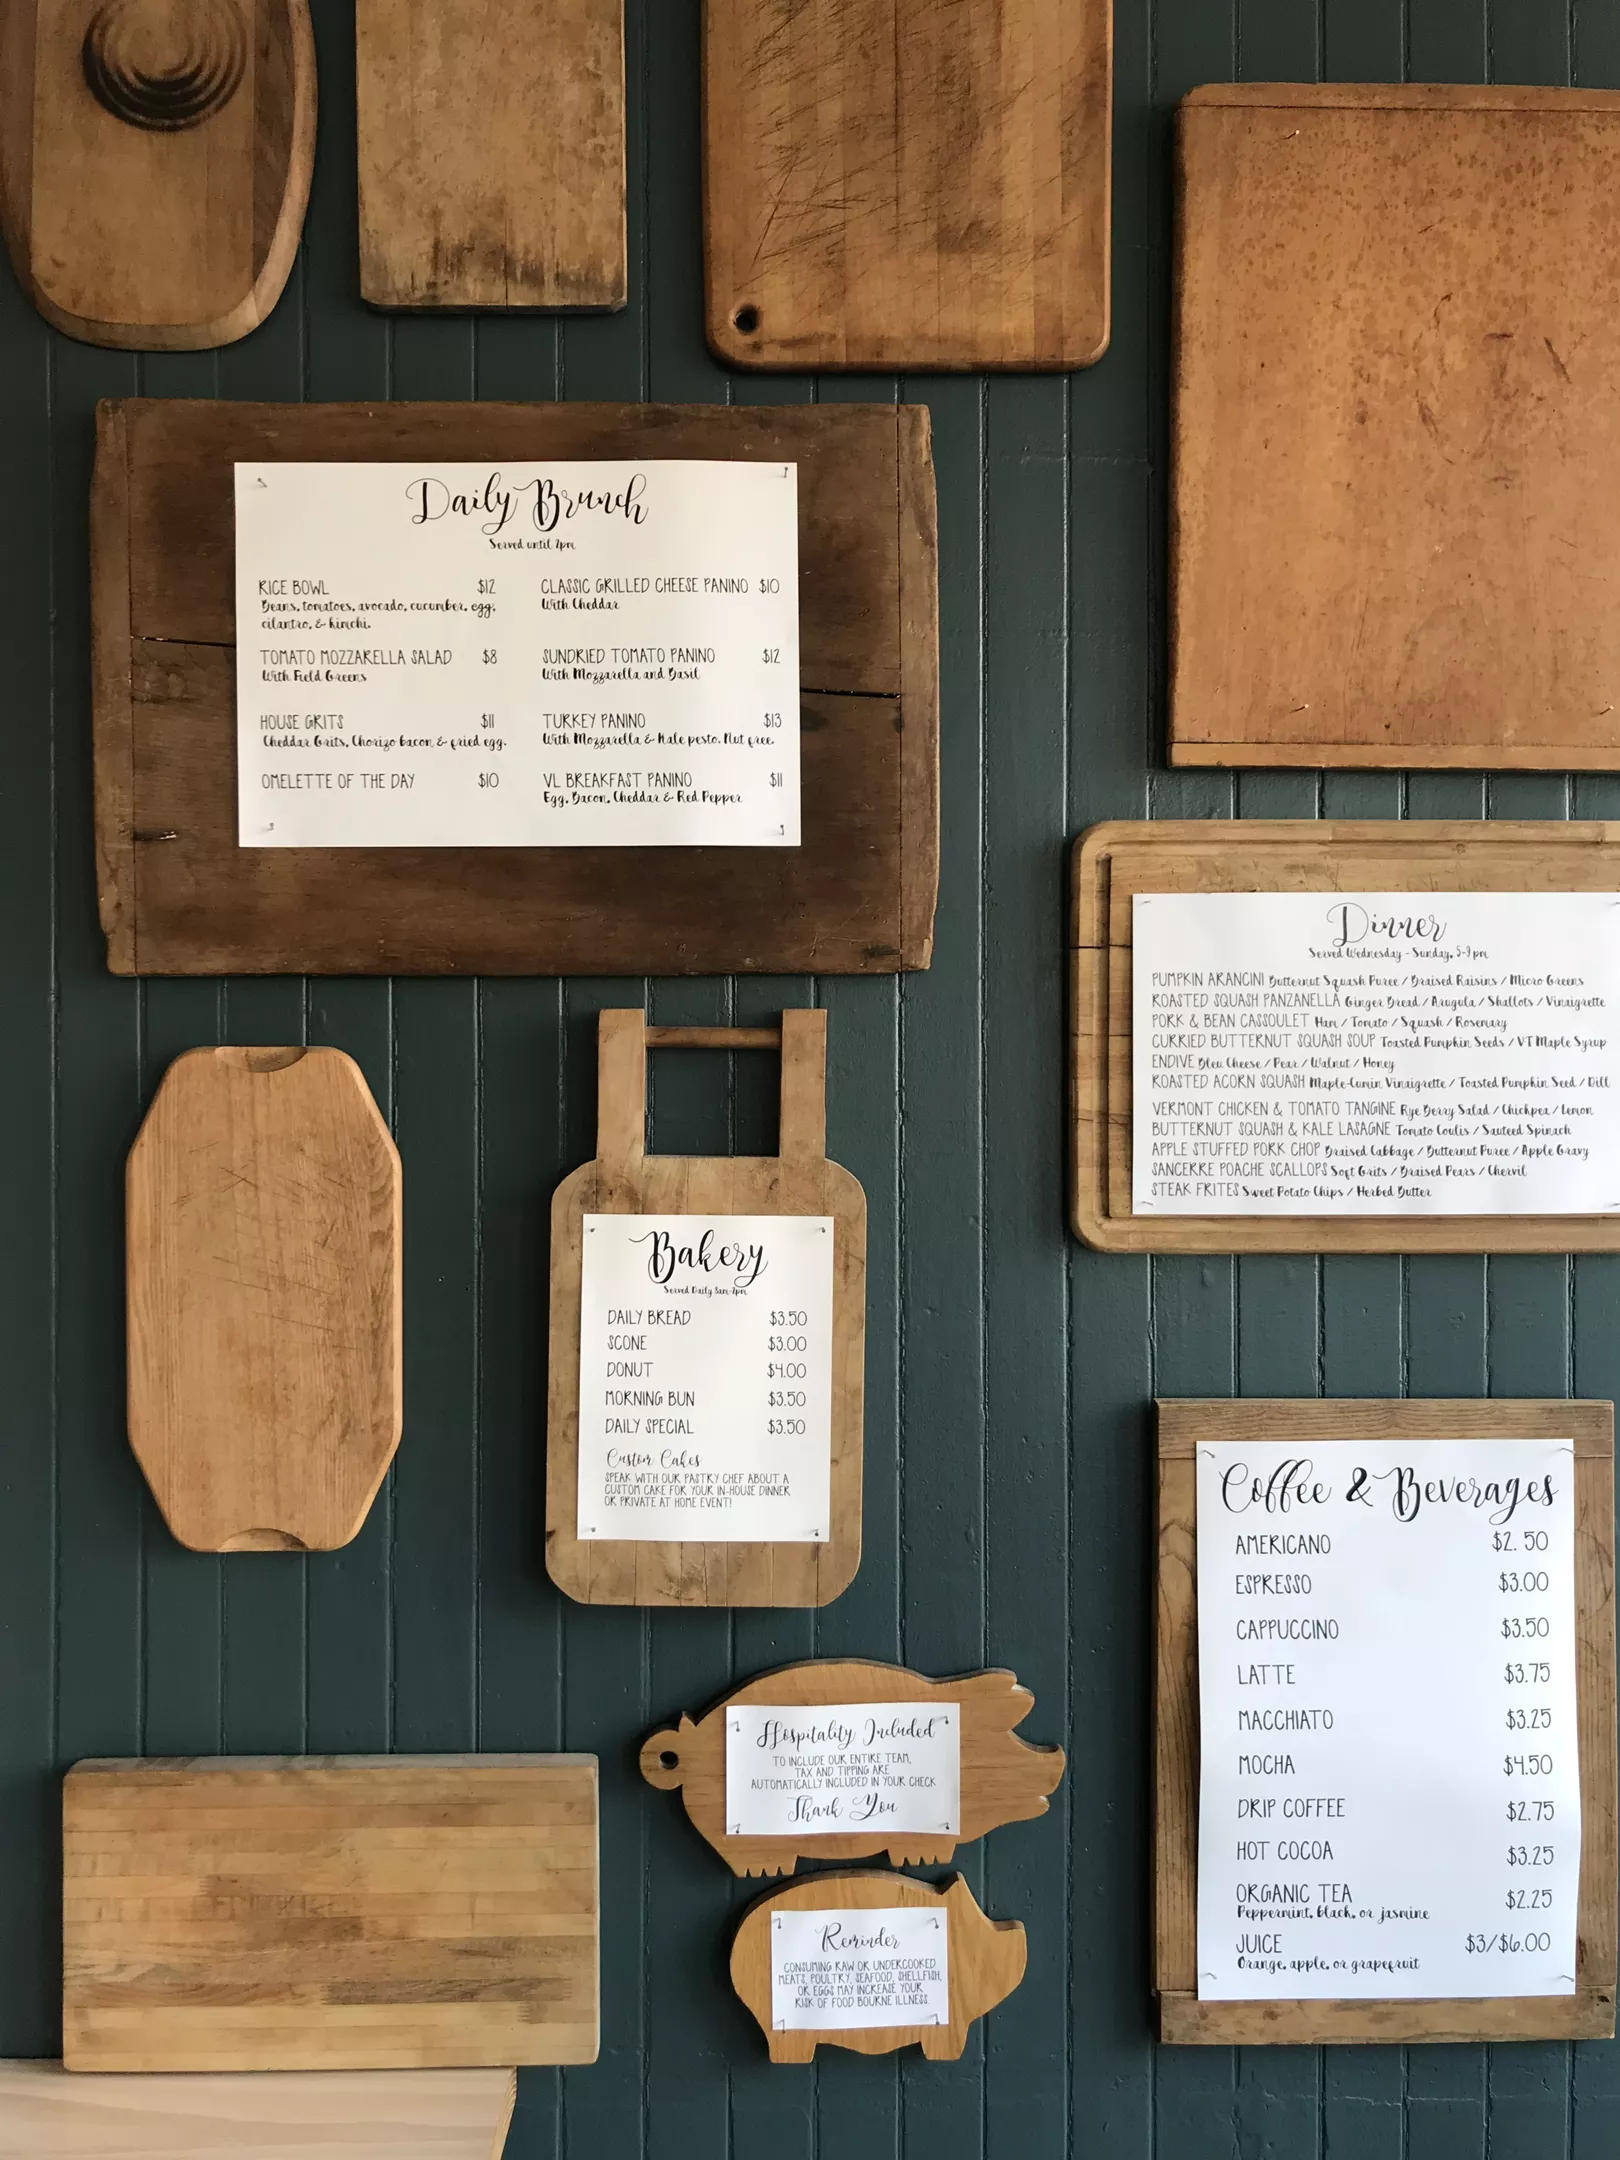 Daily Brunch
Served until 2pm
RICE BOWL $12
Beans, tomatoes, avocado, cucumber, egg,
cilantro, & kimchi.
TOMATO MOZZARELLA SALAD $8
With Field Greens
HOUSE GRITS $11
Cheddar Grits, Chorizo bacon & fried egg.
OMELETTE OF THE DAY $10
CLASSIC GRILLED CHEESE PANINO $10
With Cheddar
SUNDRIED TOMATO PANINO $12
With Mozzarella and Basil
TURKEY PANINO $13
With Mozzarella & Kale pesto. Nut free.
VL BREAKFAST PANINO $11
Egg, Bacon, Cheddar & Red Pepper
Dinner
Served Wednesday - Sunday, 5-9 pm
PUMPKIN ARANCINI Butternut Squash Puree / Braised Raisins / Micro Greens
ROASTED SQUASH PANZANELLA Ginger Bread / Arugula / Shallots / Vinaigrette
PORK & BEAN CASSOULET Ham / Tomato / Squash / Rosemary
CURRIED BUTTERNUT SQUASH SOUP Toasted Pumpkin Seeds / VT Maple Syrup
ENDIVE Bleu Cheese / Pear / Walnut / Honey
ROASTED ACORN SQUASH Maple-Cumin Vinaigrette / Toasted Pumpkin Seed / Dill
VERMONT CHICKEN & TOMATO TANGINE Rye Berry Salad / Chickpea / Lemon
BUTTERNUT SQUASH & KALE LASAGNE Tomato Coulis / Sauteed Spinach
APPLE STUFFED PORK CHOP Braised Cabbage / Butternut Puree / Apple Gravy
SANCERRE POACHE SCALLOPS Soft Grits / Braised Pears / Chervil
STEAK FRITES Sweet Potato Chips / Herbed Butter
Bakery
Served Daily 8am-2pm
DAILY BREAD $3.50
SCONE $3.00
DONUT $4.00
MORNING BUN $3.50
DAILY SPECIAL $3.50
Custom Cakes
SPEAK WITH OUR PASTRY CHEF ABOUT A
CUSTOM CAKE FOR YOUR IN-HOUSE DINNER
OR PRIVATE AT HOME EVENT!
Coffee & Beverages
AMERICANO $2. 50
ESPRESSO $3.00
CAPPUCCINO $3.50
LATTE $3.75
MACCHIATO $3.25
MOCHA $4.50
DRIP COFFEE $2.75
HOT COCOA $3.25
ORGANIC TEA $2.25
Peppermint, black, or jasmine
JUICE $3/$6.00
Orange, apple, or grapefruit
Hospitality Included
TO INCLUDE OUR ENTIRE TEAM,
TAX AND TIPPING ARE
AUTOMATICALLY INCLUDED IN YOUR CHECK
Thank You
Reminder
CONSUMING RAW OR UNDERCOOKED
MEATS, POULTRY, SEAFOOD, SHELLFISH,
OR EGGS MAY INCREASE YOUR
RISK OF FOOD BOURNE ILLNESS.